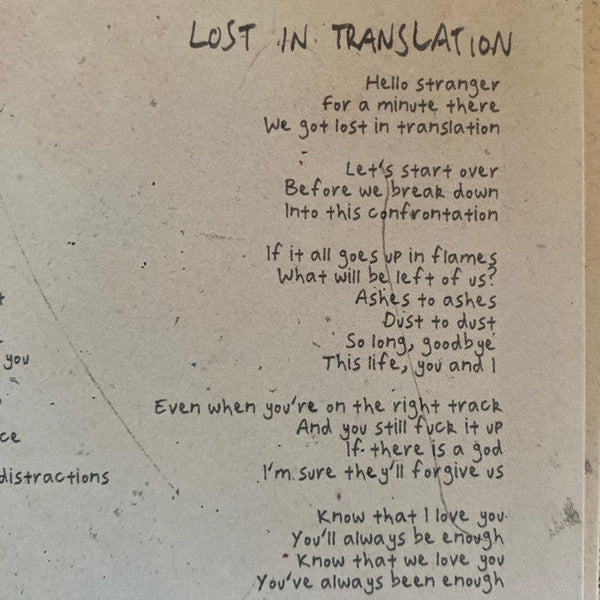 LOST IN TRANSLATION
Hello stranger
For a minute there
We got lost in translation
Let's start over
Before we break down
Into this confrontation
If it all goes up in flames
What will be left of us?
Ashes to ashes
Dust to dust
So long, goodbye
This life, you and I
Even when you're on the right track
And you still fuck it up
If there is a god
I'm sure they'll forgive us
Know that I love you
You'll always be enough
Know that we love you
You've always been enough
you
distractions